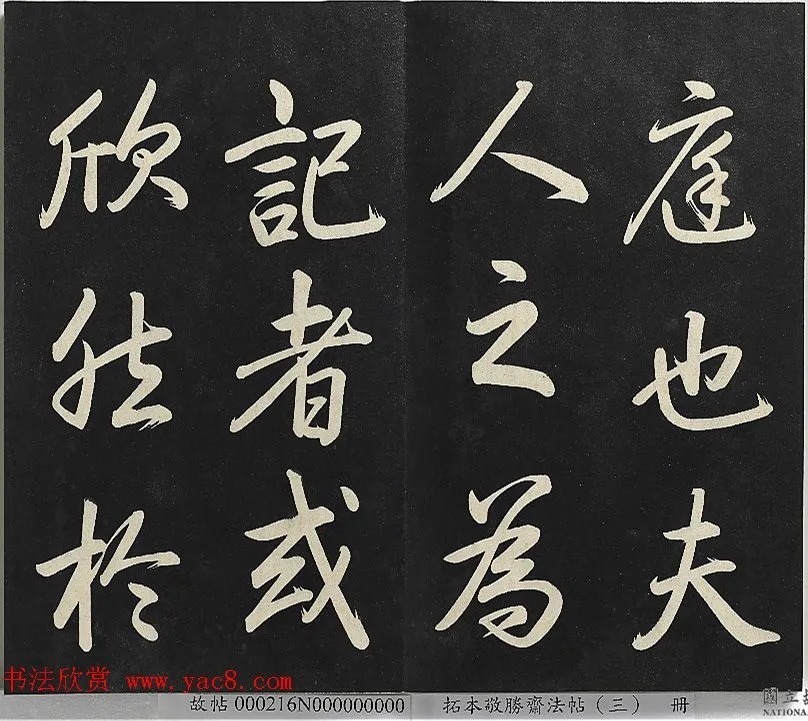 庭也夫
人之為
記者或
欣然於
书法欣赏 www.yac8.com
故帖 000216N000000000 拓本敬勝齋法帖（三） 册
國立
NATIONA